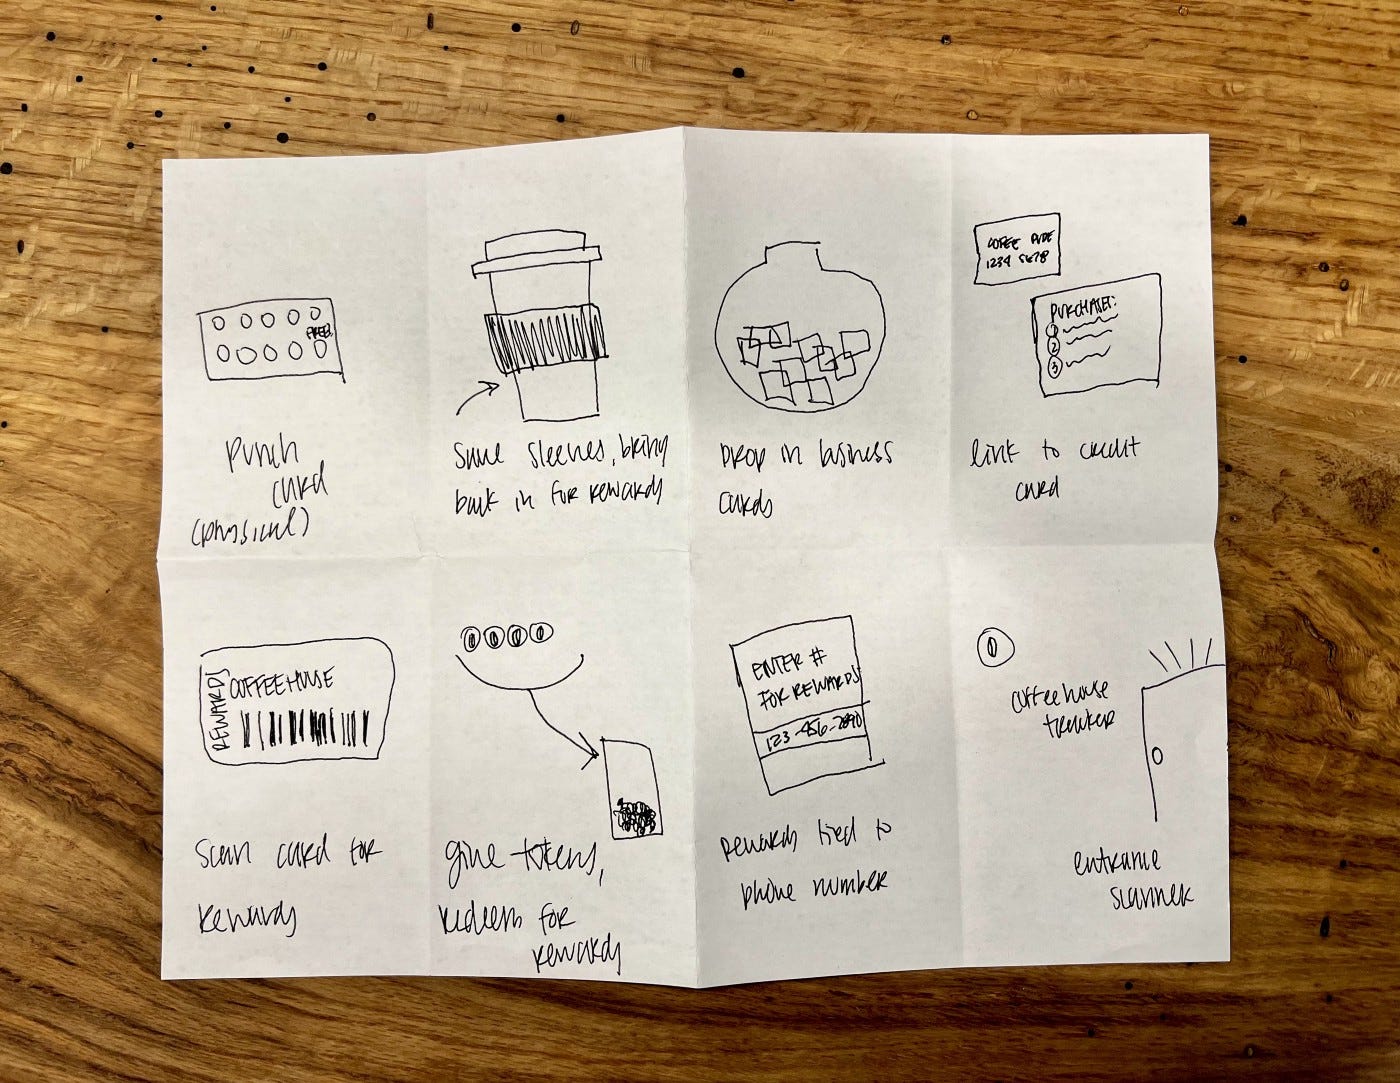 FREE
punch
card
(physical)
save sleeves, bring
back in for rewards
Drop in business
cards
COFFEE DUDE
1234 5678
PURCHASES:
1
2
3
link to credit
card
REWARDS
COFFEEHOUSE
scan card for
rewards
give tokens,
redeem for
rewards
ENTER #
FOR REWARDS
123-456-7890
rewards tied to
phone number
coffeehouse
tracker
entrance
scanner